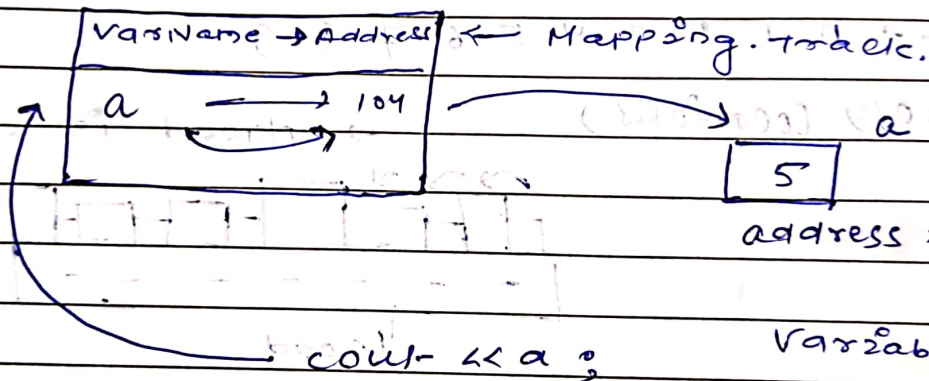 VarName → Address ← Mapping. track.
a → 104
a
5
address :
cout << a ;
Variab